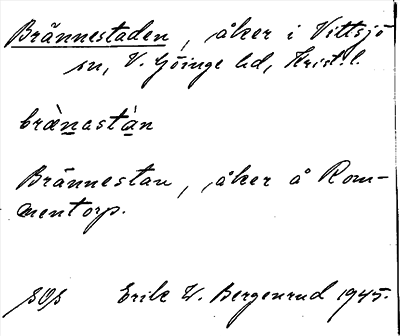 Brännestaden, åker i Vittsjö
sn, V. Göinge hd, Krist. l.
brànastàn
Brännestan, åker å Rom-
mentorp.
Erik W. Bergenrud 1945.